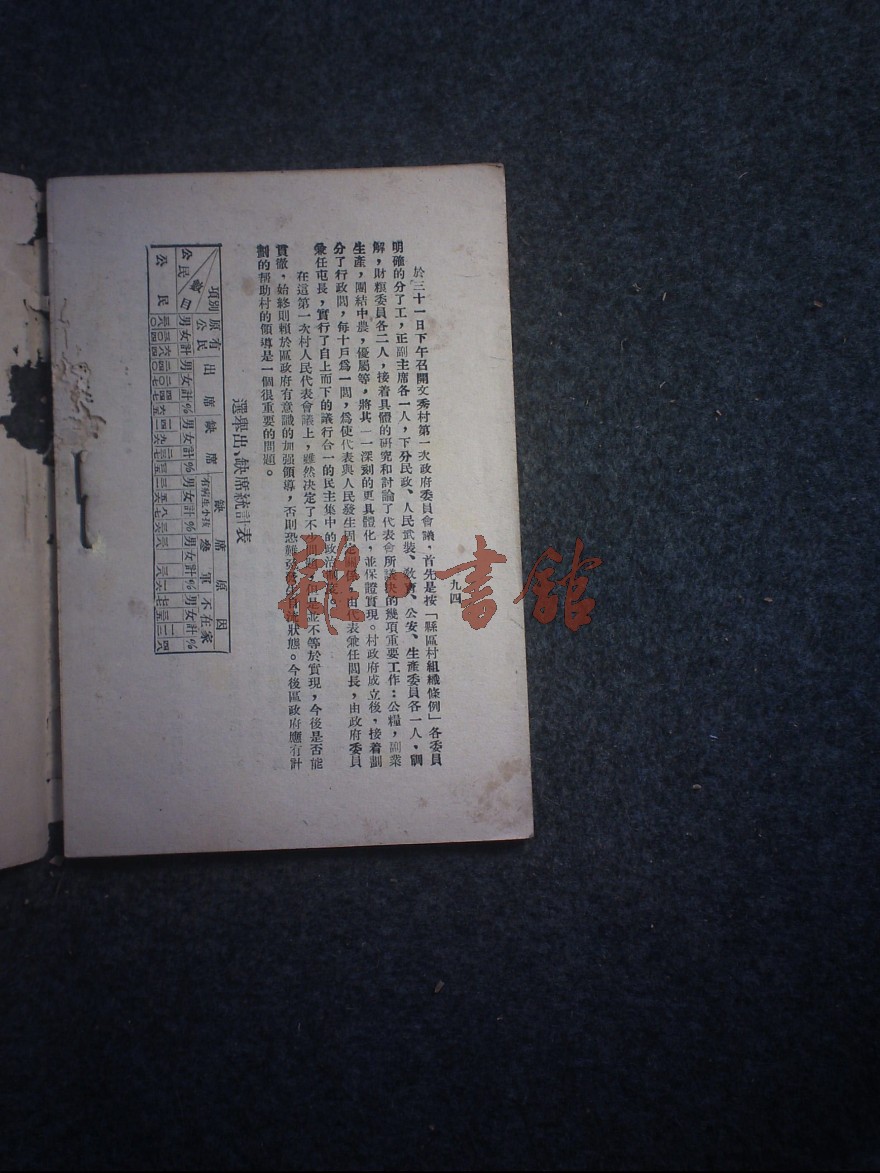 九四
於三十一日下午召開文秀村第一次政府委員會議，首先是按「縣區村組織條例」各委員
明確的分了工，正副主席各一人，下分民政、人民武裝、教育、公安、生產委員各一人，調
解，財糧委員各二人，接着具體的研究和討論了代表會所議決的幾項重要工作：公糧，副業
生產，團結中農，優屬等，將其一一深刻的更具體化，並保證實現。村政府成立後，接着劃
分了行政閭，每十戶爲一閭，爲使代表與人民發生固 由代表兼任閭長，由政府委員
兼任屯長，實行了自上而下的議行合一的民主集中的政治
在這第一次村人民代表會議上，雖然決定了不 問題 並不等於實現，今後是否能
貫徹，始終則賴於區政府有意識的加强領導，否則恐難 狀態。今後區政府應有計
劃的帮助村的領導是一個很重要的問題。
選舉出、缺席統計表
項別 原有公民 出席 缺席 缺席原因
有病生小孩 參軍 不在家
公民 男女計 男女計% 男女計% 男女計% 男女計% 男女計%
公民
雜·書館